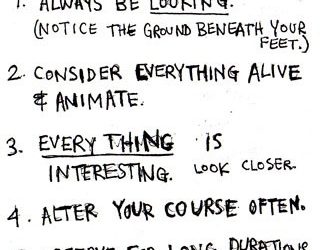 1. ALWAYS BE LOOKING.
(NOTICE THE GROUND BENEATH YOUR
FEET.)
2. CONSIDER EVERYTHING ALIVE
& ANIMATE.
3. EVERY THING IS
INTERESTING. LOOK CLOSER.
4. ALTER YOUR COURSE OFTEN.
FOR LONG